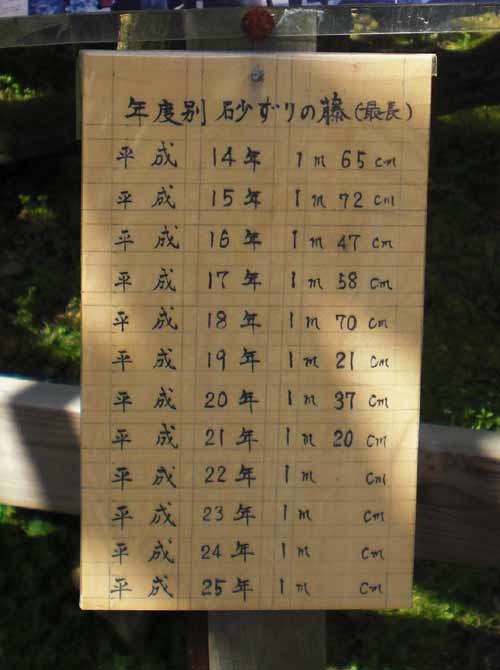 年度別 砂ずりの藤(最長)
平成 14年 1m 65cm
平成 15年 1m 72cm
平成 16年 1m 47cm
平成 17年 1m 58cm
平成 18年 1m 70cm
平成 19年 1m 21cm
平成 20年 1m 37cm
平成 21年 1m 20cm
平成 22年 1m cm
平成 23年 1m cm
平成 24年 1m cm
平成 25年 1m cm